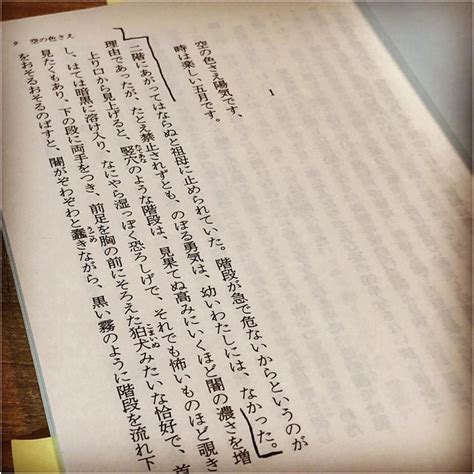 9 空の色さえ
1
空の色さえ陽気です、
時は楽しい五月です。
二階にあがってはならぬと祖母に止められていた。階段が急で危ないからというのが
理由であったが、たとえ禁止されずとも、のぼる勇気は、幼いわたしには、なかった。
上り口から見上げると、竪穴のような階段は、見果てぬ高みにいくほど闇の濃さを増
し、はては暗黒に溶け入り、なにやら湿っぽく恐ろしげで、それでも怖いものほど覗き
見たくもあり、下の段に両手をつき、前足を胸の前にそろえた狛犬みたいな恰好で、首
をおそるおそるのばすと、闇がぞわぞわと蠢きながら、黒い霧のように階段を流れ下